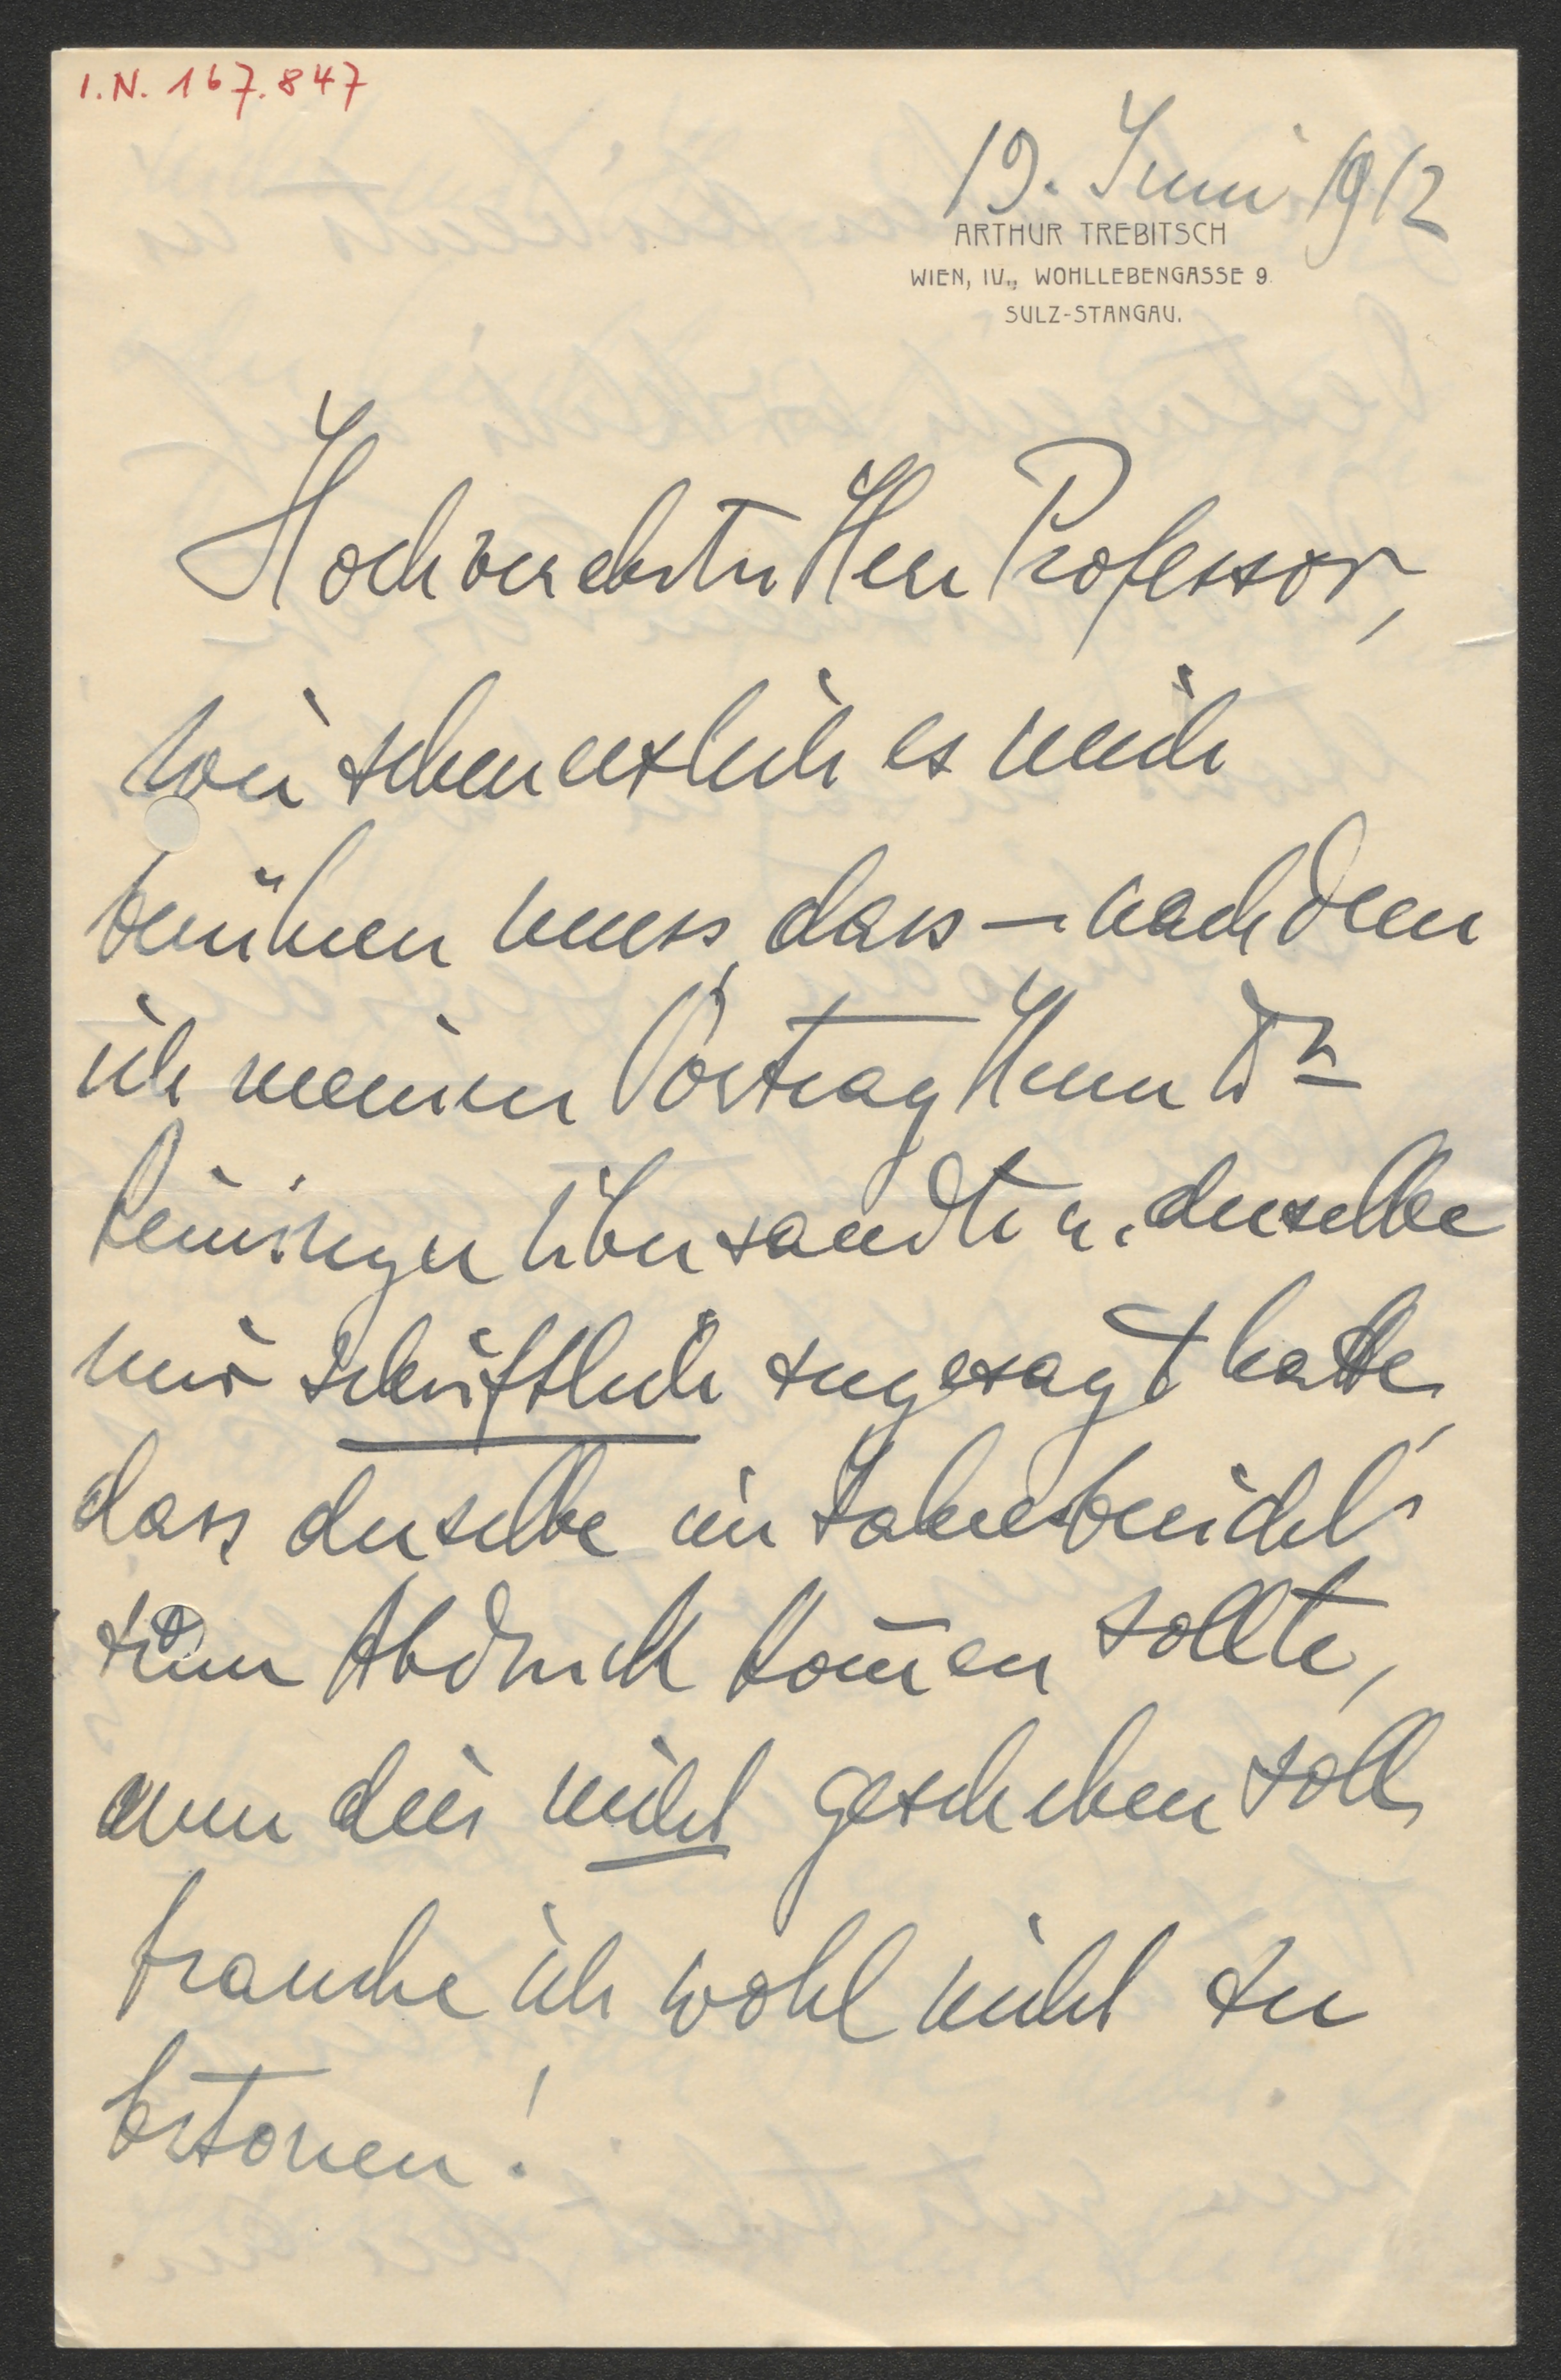 I.N. 167.847
19. Juni 1912
ARTHUR TREBITSCH
WIEN, IV., WOHLLEBENGASSE 9.
SULZ-STANGAU.
Hochverehrter Herr Professor,
wie schmerzlich es mich
berühren muss, dass – nachdem
ich meinen Vortrag Herrn Dr
Reininger übersandte u. derselbe
mir schriftlich zugesagt hatte,
dass derselbe im Jahresbericht
zum Abdruck kom̅en sollte,
nun dies nicht geschehen soll,
brauche ich wohl nicht zu
betonen!